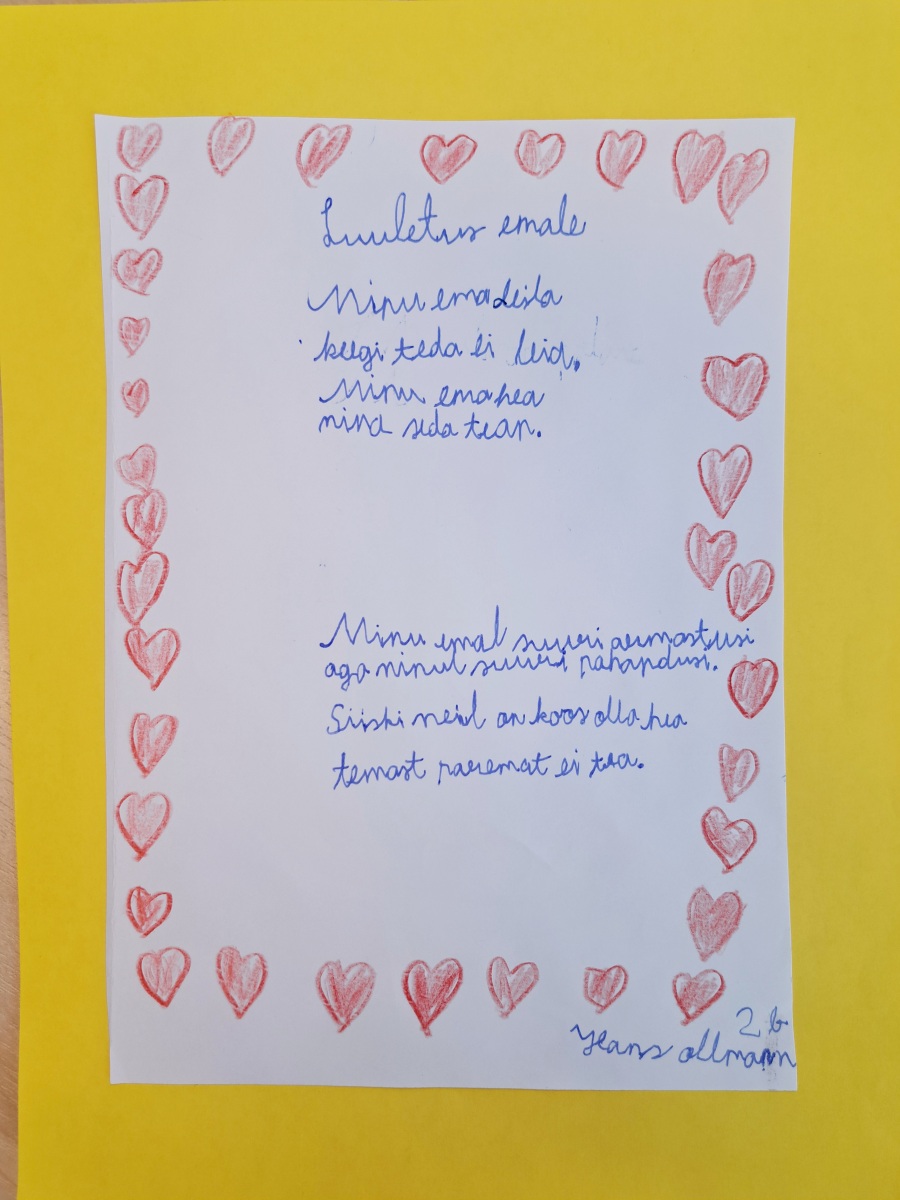 Luuletus emale
Minu ema leila
keegi teda ei leia.
Minu ema hea
mina seda tean.
Minu emal suuri armastusi
aga minul suuri pahandusi.
Siiski meil on koos olla hea
temast paremat ei tea.
2 b
Hans ollmann